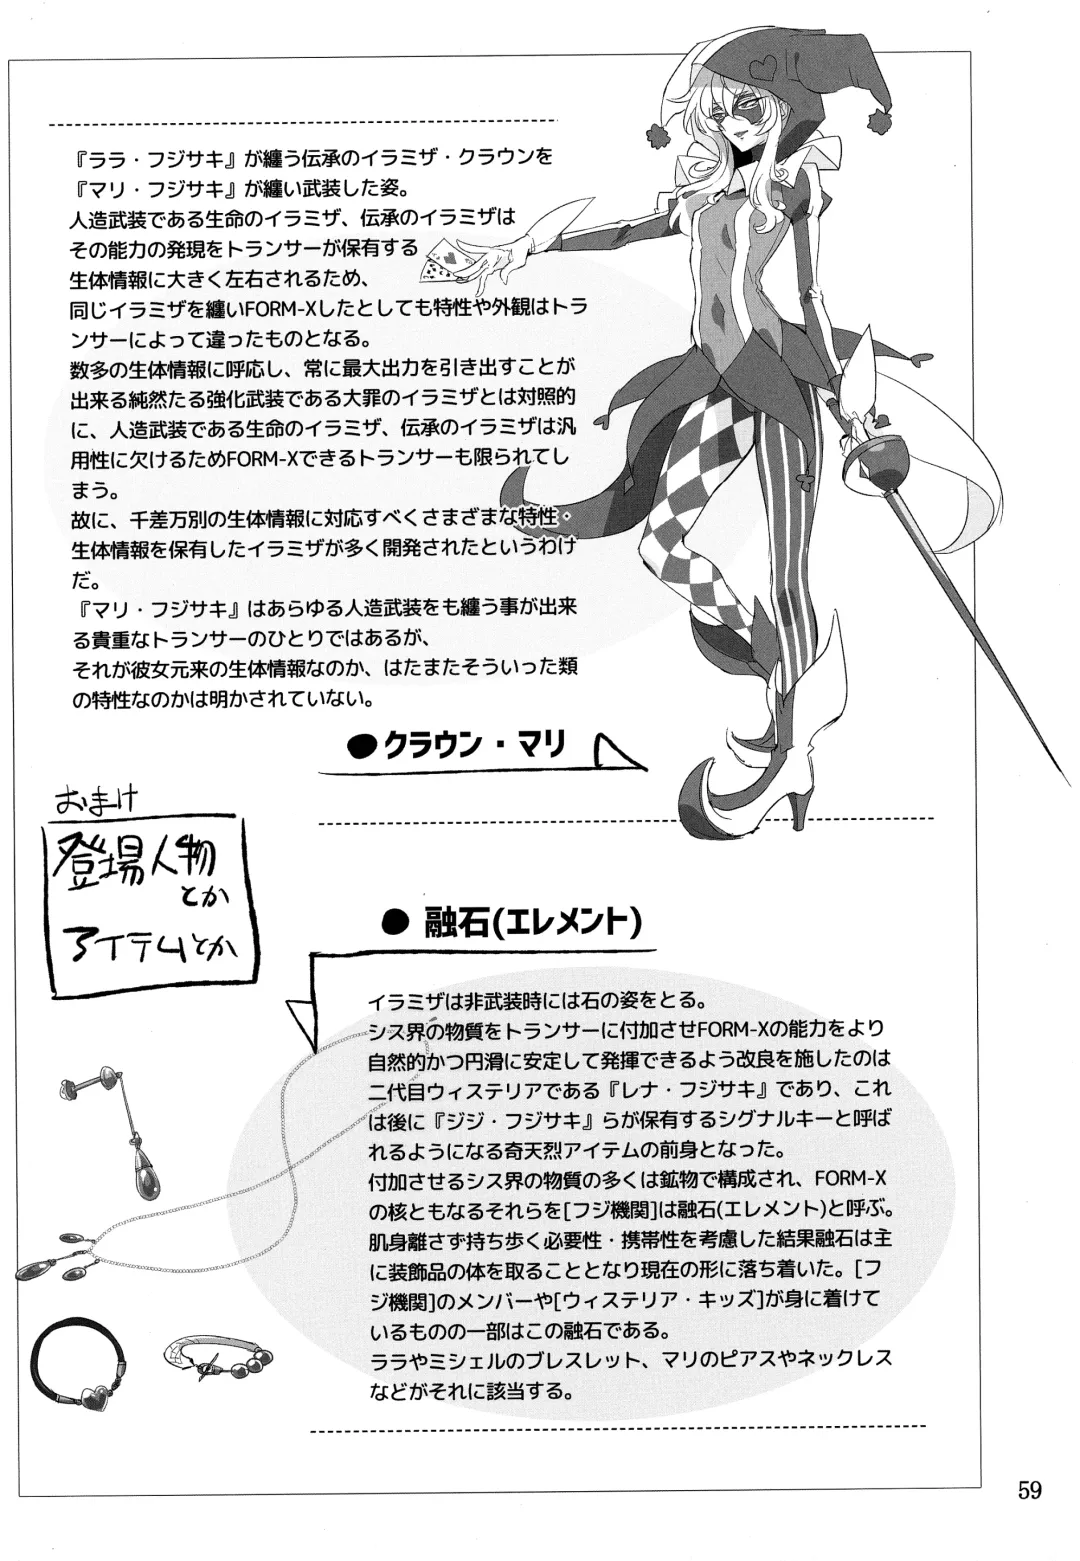 『ララ・フジサキ』が纏う伝承のイラミザ・クラウンを
『マリ・フジサキ』が纏い武装した姿。
人造武装である生命のイラミザ、伝承のイラミザは
その能力の発現をトランサーが保有する
生体情報に大きく左右されるため、
同じイラミザを纏いFORM-Xしたとしても特性や外観はトラ
ンサーによって違ったものとなる。
数多の生体情報に呼応し、常に最大出力を引き出すことが
出来る純然たる強化武装である大罪のイラミザとは対照的
に、人造武装である生命のイラミザ、伝承のイラミザは汎
用性に欠けるためFORM-Xできるトランサーも限られてし
まう。
故に、千差万別の生体情報に対応すべくさまざまな特性・
生体情報を保有したイラミザが多く開発されたというわけ
だ。
『マリ・フジサキ』はあらゆる人造武装をも纏う事が出来
る貴重なトランサーのひとりではあるが、
それが彼女元来の生体情報なのか、はたまたそういった類
の特性なのかは明かされていない。
●クラウン・マリ
おまけ
登場人物
とか
アイテムとか
● 融石(エレメント)
イラミザは非武装時には石の姿をとる。
シス界の物質をトランサーに付加させFORM-Xの能力をより
自然的かつ円滑に安定して発揮できるよう改良を施したのは
二代目ウィステリアである『レナ・フジサキ』であり、これ
は後に『ジジ・フジサキ』らが保有するシグナルキーと呼ば
れるようになる奇天烈アイテムの前身となった。
付加させるシス界の物質の多くは鉱物で構成され、FORM-X
の核ともなるそれらを[フジ機関]は融石(エレメント)と呼ぶ。
肌身離さず持ち歩く必要性・携帯性を考慮した結果融石は主
に装飾品の体を取ることとなり現在の形に落ち着いた。[フ
ジ機関]のメンバーや[ウィステリア・キッズ]が身に着けて
いるものの一部はこの融石である。
ララやミシェルのブレスレット、マリのピアスやネックレス
などがそれに該当する。
59